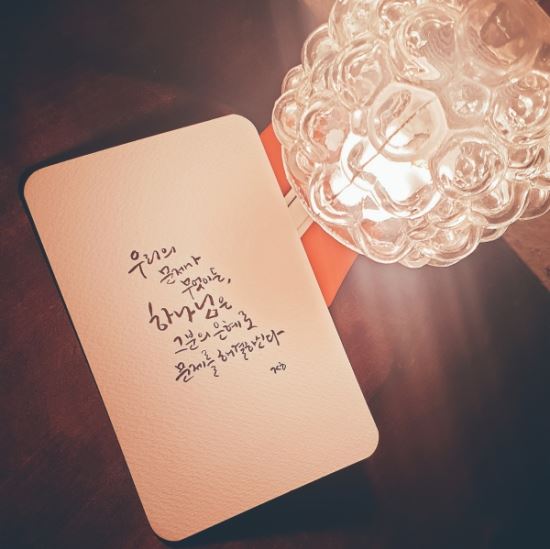 우리의
문제가
무엇이든,
하나님은
그분의 은혜로
문제를 해결하신다